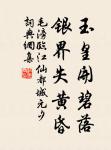 玉皇開碧落
銀界失黃昏
毛滂臨江仙都城元夕
詞典網集